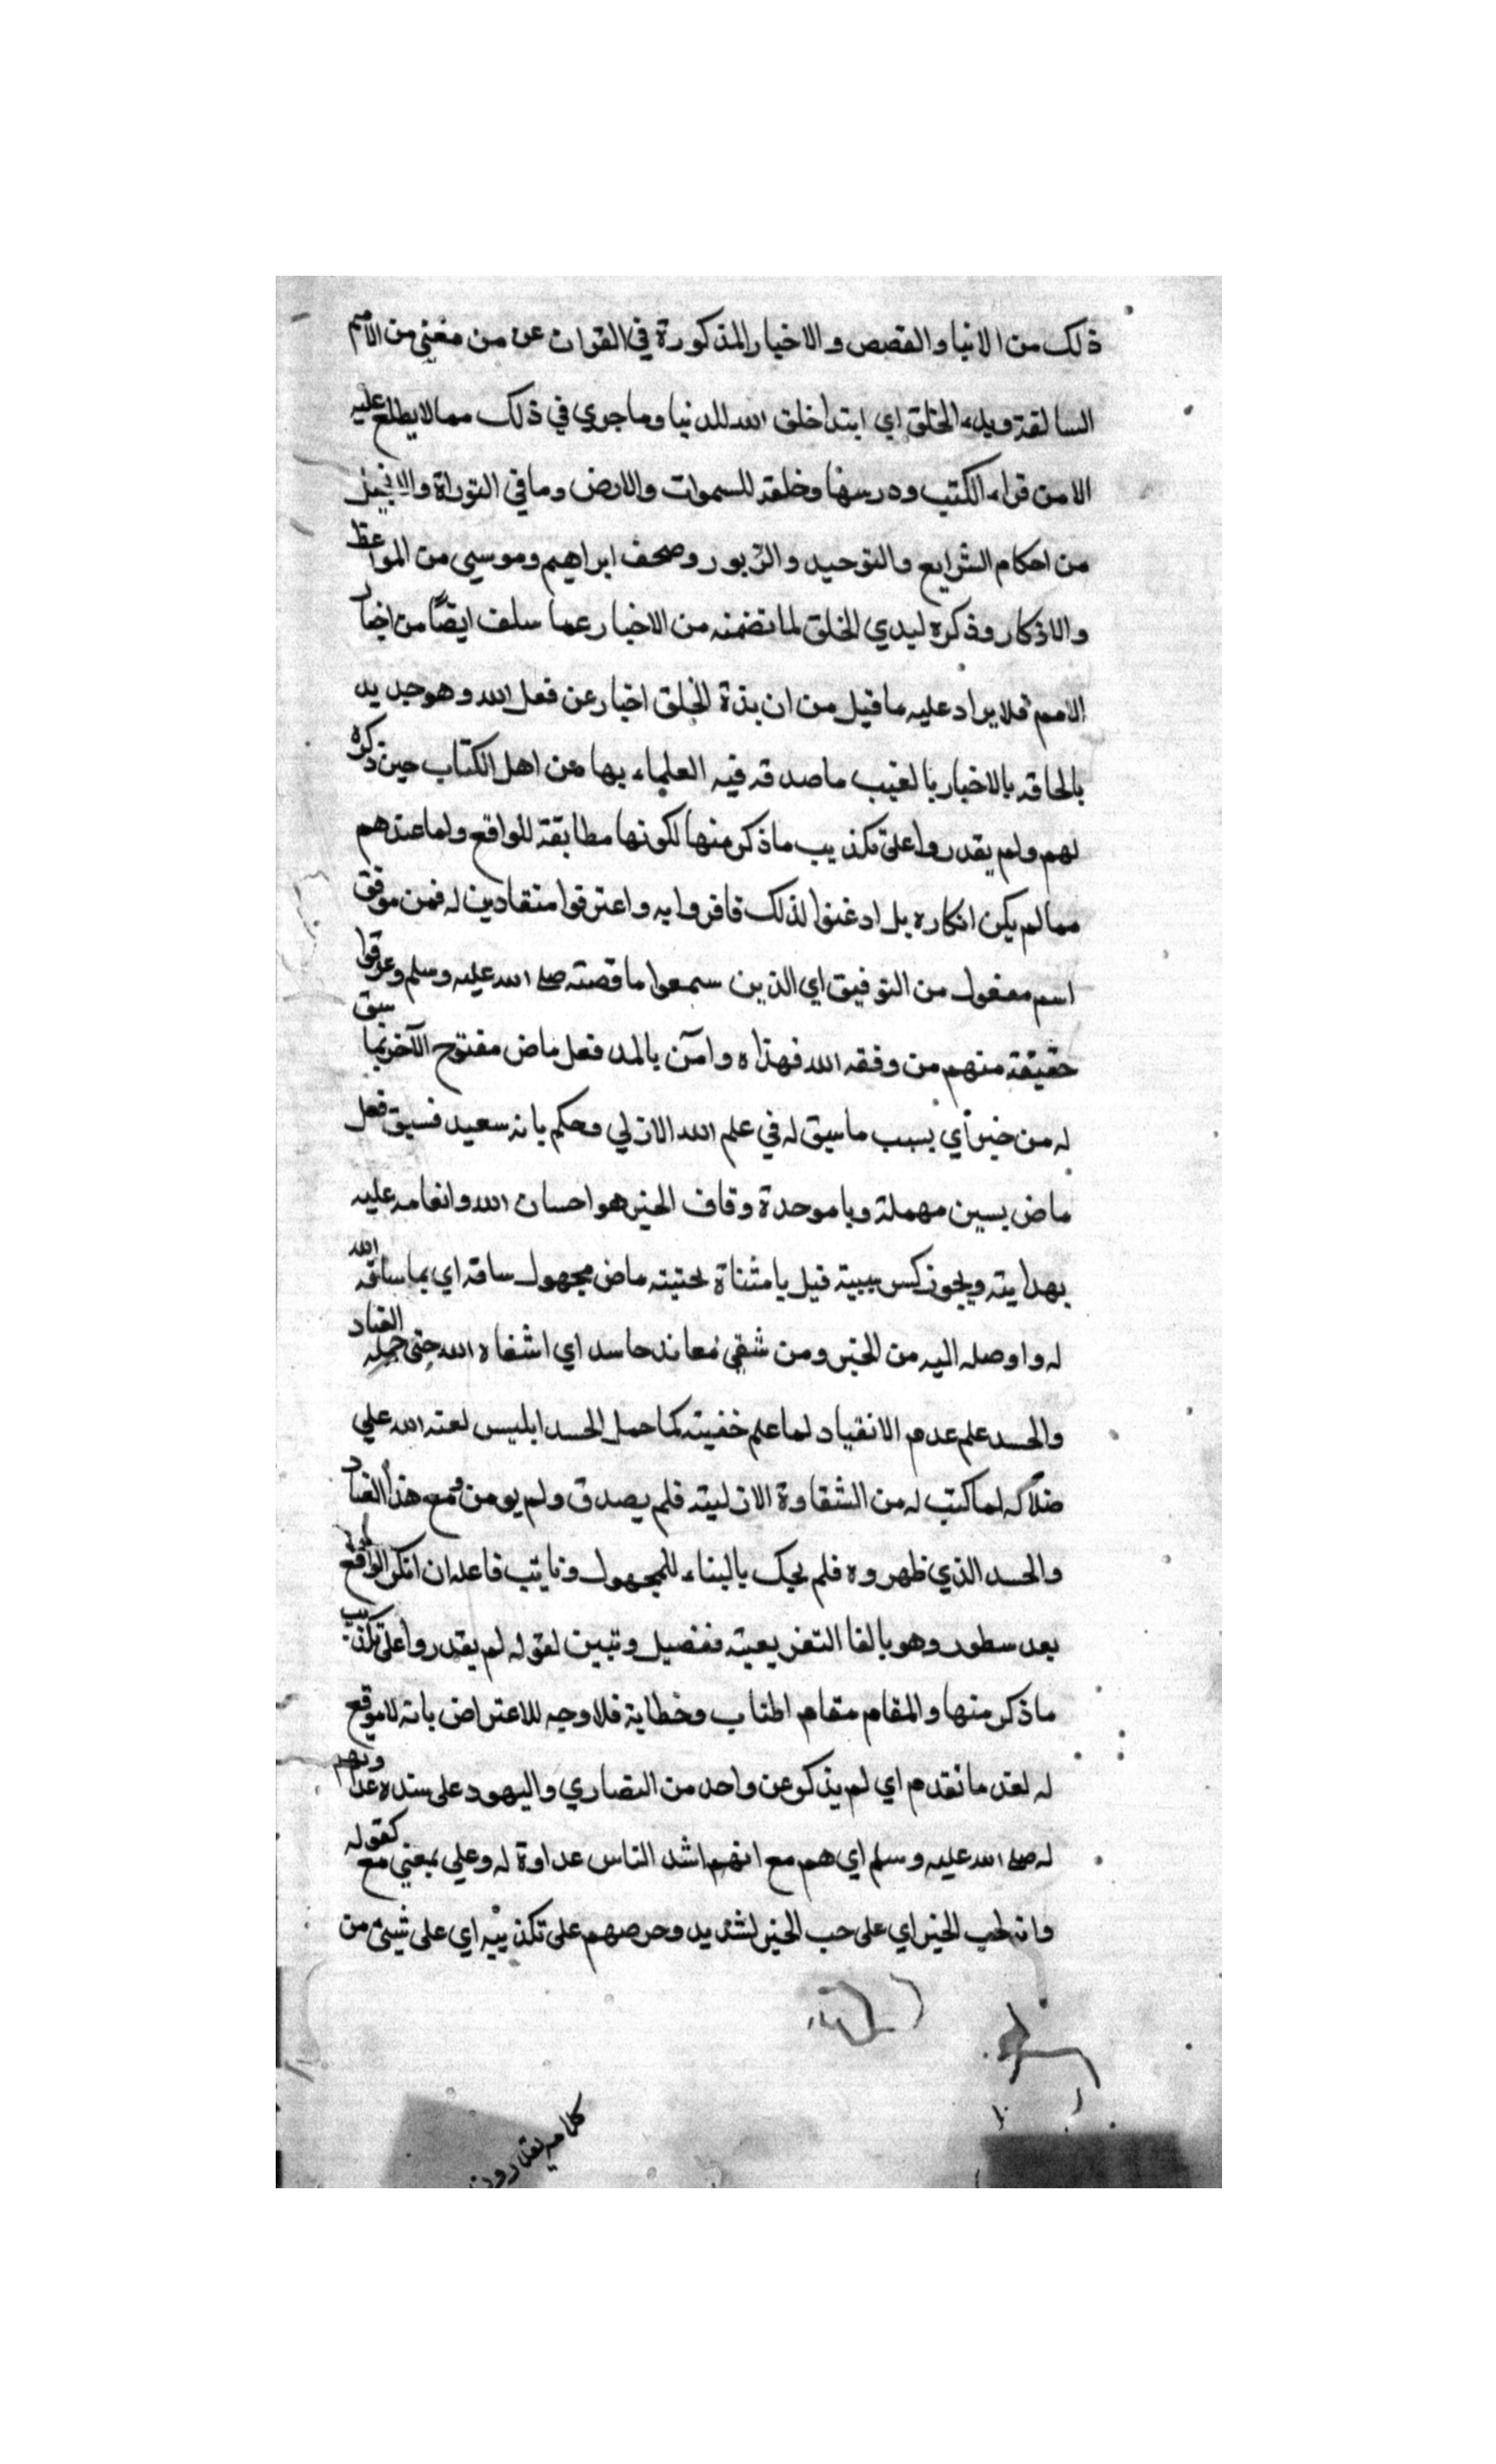 ذلك من الانبيا والقصص والاخبار المذكورة في القران عن من مضي من الامم
السالفة وبدء الخلق اي ابتدا خلق الله للدنيا وما جري في ذلك مما لا يطلع عليه
الا من قراء الكتب ودرسها وخلقه للسموات والارض وما في التوراة والانجيل
من احكام الشرايع والتوحيد والزبور وصحف ابراهيم وموسي من المواعظ
والاذكار وذكره لبدي الخلق لما تضمنه من الاخبار عما سلف ايضًا من اخبار
الامم فلا يراد عليه ما قيل من ان بدة الخلق اخبار عن فعل الله وهو جديد
بالحاقه بالاخبار بالغيب ما صدقه فيه العلماء بها من اهل الكتاب حين ذكره
لهم ولم يقدروا على تكذيب ما ذكر منها لكونها مطابقة للواقع ولما عندهم
مما لم يكن انكاره بل ادغنوا لذلك فاقروا به واعترفوا منقادين له فمن موفق
اسم مفعول من التوفيق اي الذين سمعوا ما قصته صلى الله عليه وسلم وعرفوا
حقيقة منهم من وفقه الله فهداه وامٓن بالمد فعل ماض مفتوح الآخر بما سبق
له من خير أي بسبب ما سبق له في علم الله الازلي وحكم بانه سعيد فسبق فعل
ماض بسين مهملة وبا موحدة وقاف الخير هو احسان الله وانعامه عليه
بهدايته ويجوز كسر سببية قيل يا مثناة تحتيته ماض مجهول ساقه اي بما ساقه الله
له واوصله اليه من الخير ومن شقي معاند حاسد اي اشقاه الله حتى حمله العناد
والحسد علم عدم الانقياد لما علم خفيته كما حمل الحسد ابليس لعنه الله علي
ضلاله لما كتب له من الشقاوة الازليته فلم يصدق ولم يومن ومع هذا العناد
والحسد الذي ظهروه فلم يحك بالبناء للمجهول ونايب فاعله ان انكر الواقع
بعد سطور وهو بالفا التفريعيته تفصيل وتبين لقوله لم يقدروا على تكذيب
ما ذكر منها والمقام مقام اطناب وخطابة فلا وجه للاعتراض بانه لا موقع
له لعد ما تقدم اي لم يذكر عن واحد من النصاري واليهود على شدة عداوتهم
له صلى الله عليه وسلم اي هم مع انهم اشد الناس عداوة له وعلي بمعني مع كقوله
وانه لحب الخير اي على حب الخير لشديد وحرصهم على تكذيبه اي على شيئ من